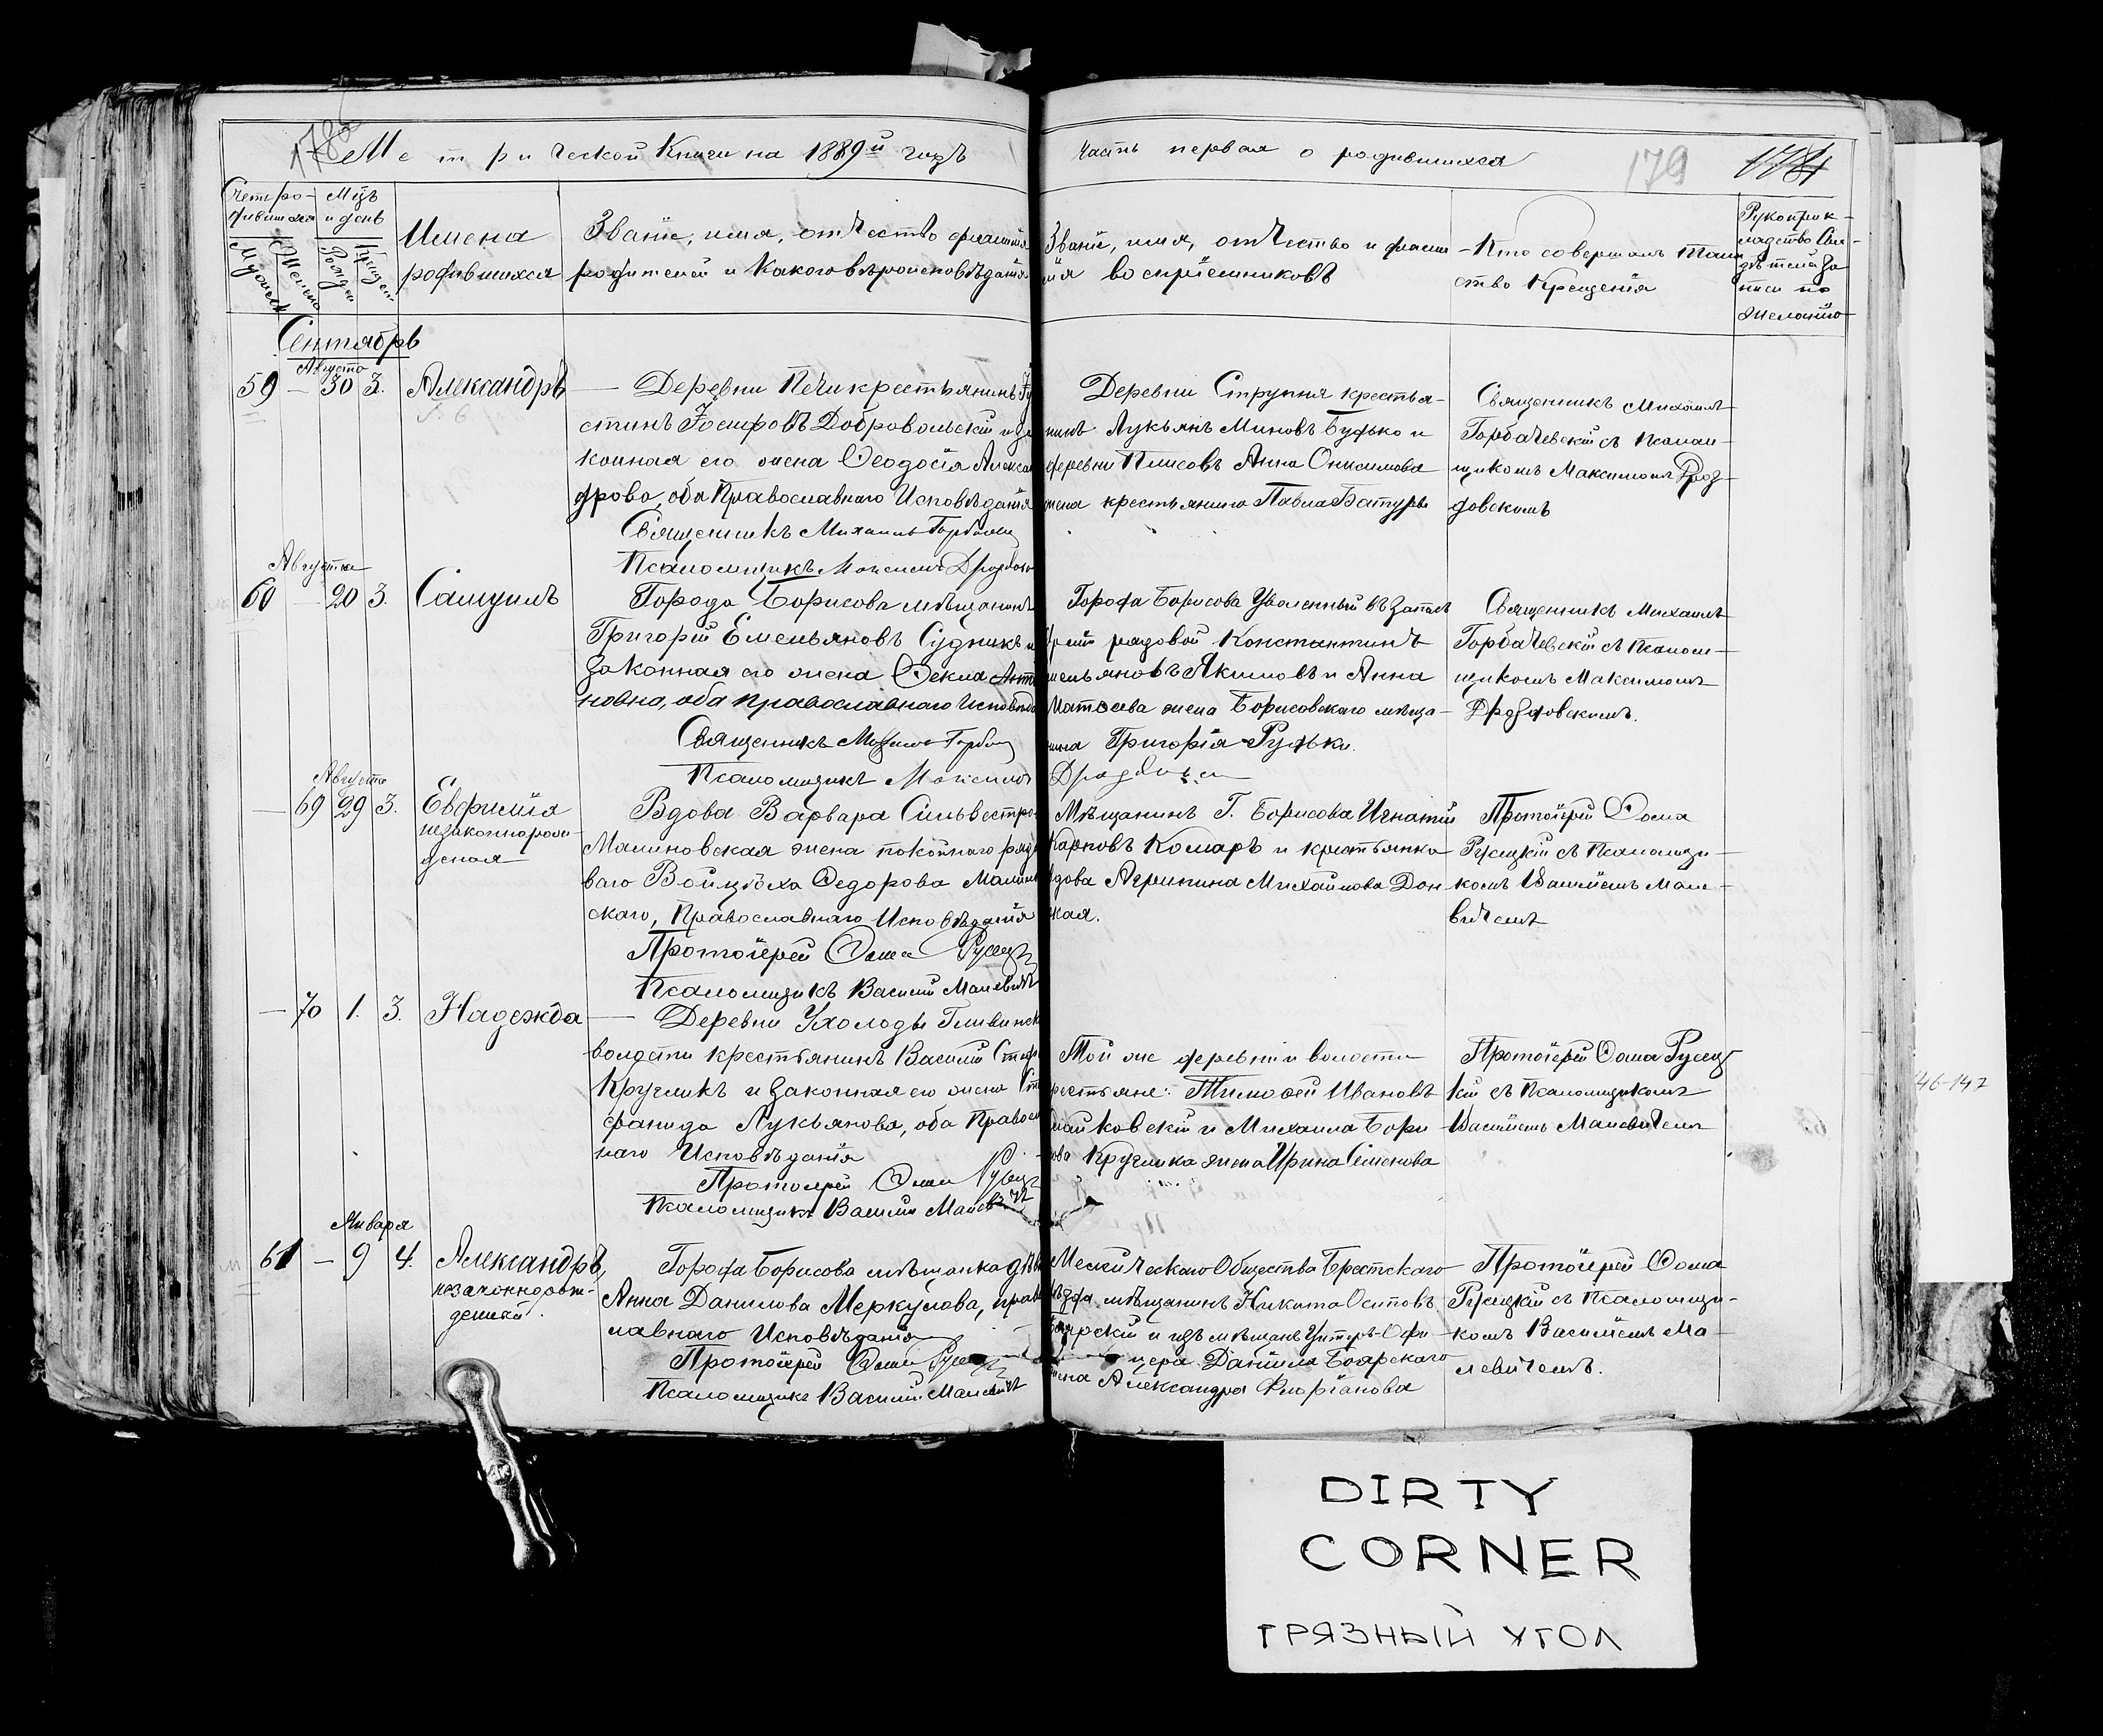 Метрической Книги на 1889й годъ
Часть первая о родившихся
179
Счетъ ро-
дившихся
Мцъ
и день
Имена
родившихся
Званіе, имя, отчество фамилія
родителей и какого вѣроисповѣданія
Званіе, имя, отчество и фамил
ія воспріемниковъ
Кто совершалъ таин
ство крещенія
Рукоприк-
ладство сви-
дѣтелей за
писи по
желанію
Мужеск
Женска
Рожден
Крещен
Сентябрь
Августа
59 — 30 3. Александръ
Деревни Печи крестьянинъ
стинъ Іосифовъ Добровольскій и за
конная его жена Ѳеодосія Алексан
дрова, оба Православнаго Исповѣданія
Священникъ Михаилъ Горбачев
Псаломщикъ Максимъ Дроздов
Деревни Струпня крестья-
нинъ Лукьянъ Миновъ Будько и
деревни Плисовъ Анна Онисимова
жена крестьянина Павла Батуры
Священникъ Михаилъ
Горбачевскій съ Псалом-
щикомъ Максимомъ Дроз-
довскимъ
Августа
60 — 20 3. Самуилъ
Города Борисова мѣщанинъ
Григорій Емельяновъ Судникъ и
законная его жена Ѳекла Анто
новна, оба православнаго Исповѣда
Священникъ Михаилъ Горбач
Псаломщикъ Максимъ
Города Борисова Уволенный въ запасъ
рядовой Константинъ
мельяновъ Якимовъ и Анна
Матѳеева жена Борисовскаго мѣща-
нина Григорія Рудьки.
Дроздовск
Священникъ Михаилъ
Горбачевскій съ Псалом-
щикомъ Максимомъ
Дроздовскимъ.
Августа
— 69 29 3. Евфимія
незаконнорож-
денная
Вдова Варвара Сильвестро
Малиновская жена покойнаго рядо
ваго Войцѣха Ѳедорова Малинов
скаго, Православнаго Исповѣданія
Протоіерей Ѳома Русец
Псаломщикъ Василій Малевичъ
Мѣщанинъ Г. Борисова Игнатій
Карповъ Комаръ и крестьянка
вдова Агрипина Михайлова Дон
ская.
Протоіерей Ѳома
Русецкій съ Псаломщи-
комъ Василіемъ Мале-
вичемъ
— 70 1. 3. Надежда
Деревни Ухолоды Гливинск
волости крестьянинъ Василій Стеф
Кругликъ и законная его жена Сте
фанида Лукьянова, оба Правосл
наго Исповѣданія
Протоіерей Ѳома Русец
Псаломщикъ Василій Малевичъ
Той же деревни и волости
рестьяне: Тимоѳей Ивановъ
ковскій и Михаила Бори
ова Круглика жена Ирина Семенова
Протоіерей Ѳома Русец
кій съ Псаломщикомъ
Василіемъ Малевичемъ
Января
61 — 9 4. Александръ,
незаконнорож-
денный.
Города Борисова мѣщанка дѣв
Анна Данилова Меркулова, право
лавнаго Исповѣданія
Протоіерей Ѳома Русец
Псаломщикъ Василій Малевичъ
Мещическаго Общества Брестскаго
ѣзда мѣщанинъ Никита Осиповъ
Боярскій и изъ мѣщанъ Унтеръ-Офи
цера Даніила Боярскаго
жена Александра Флоріанова
Протоіерей Ѳома
Русецкій съ Псаломщи-
комъ Василіемъ Ма-
левичемъ.
46-147
DIRTY
CORNER
ГРЯЗНЫЙ УГОЛ